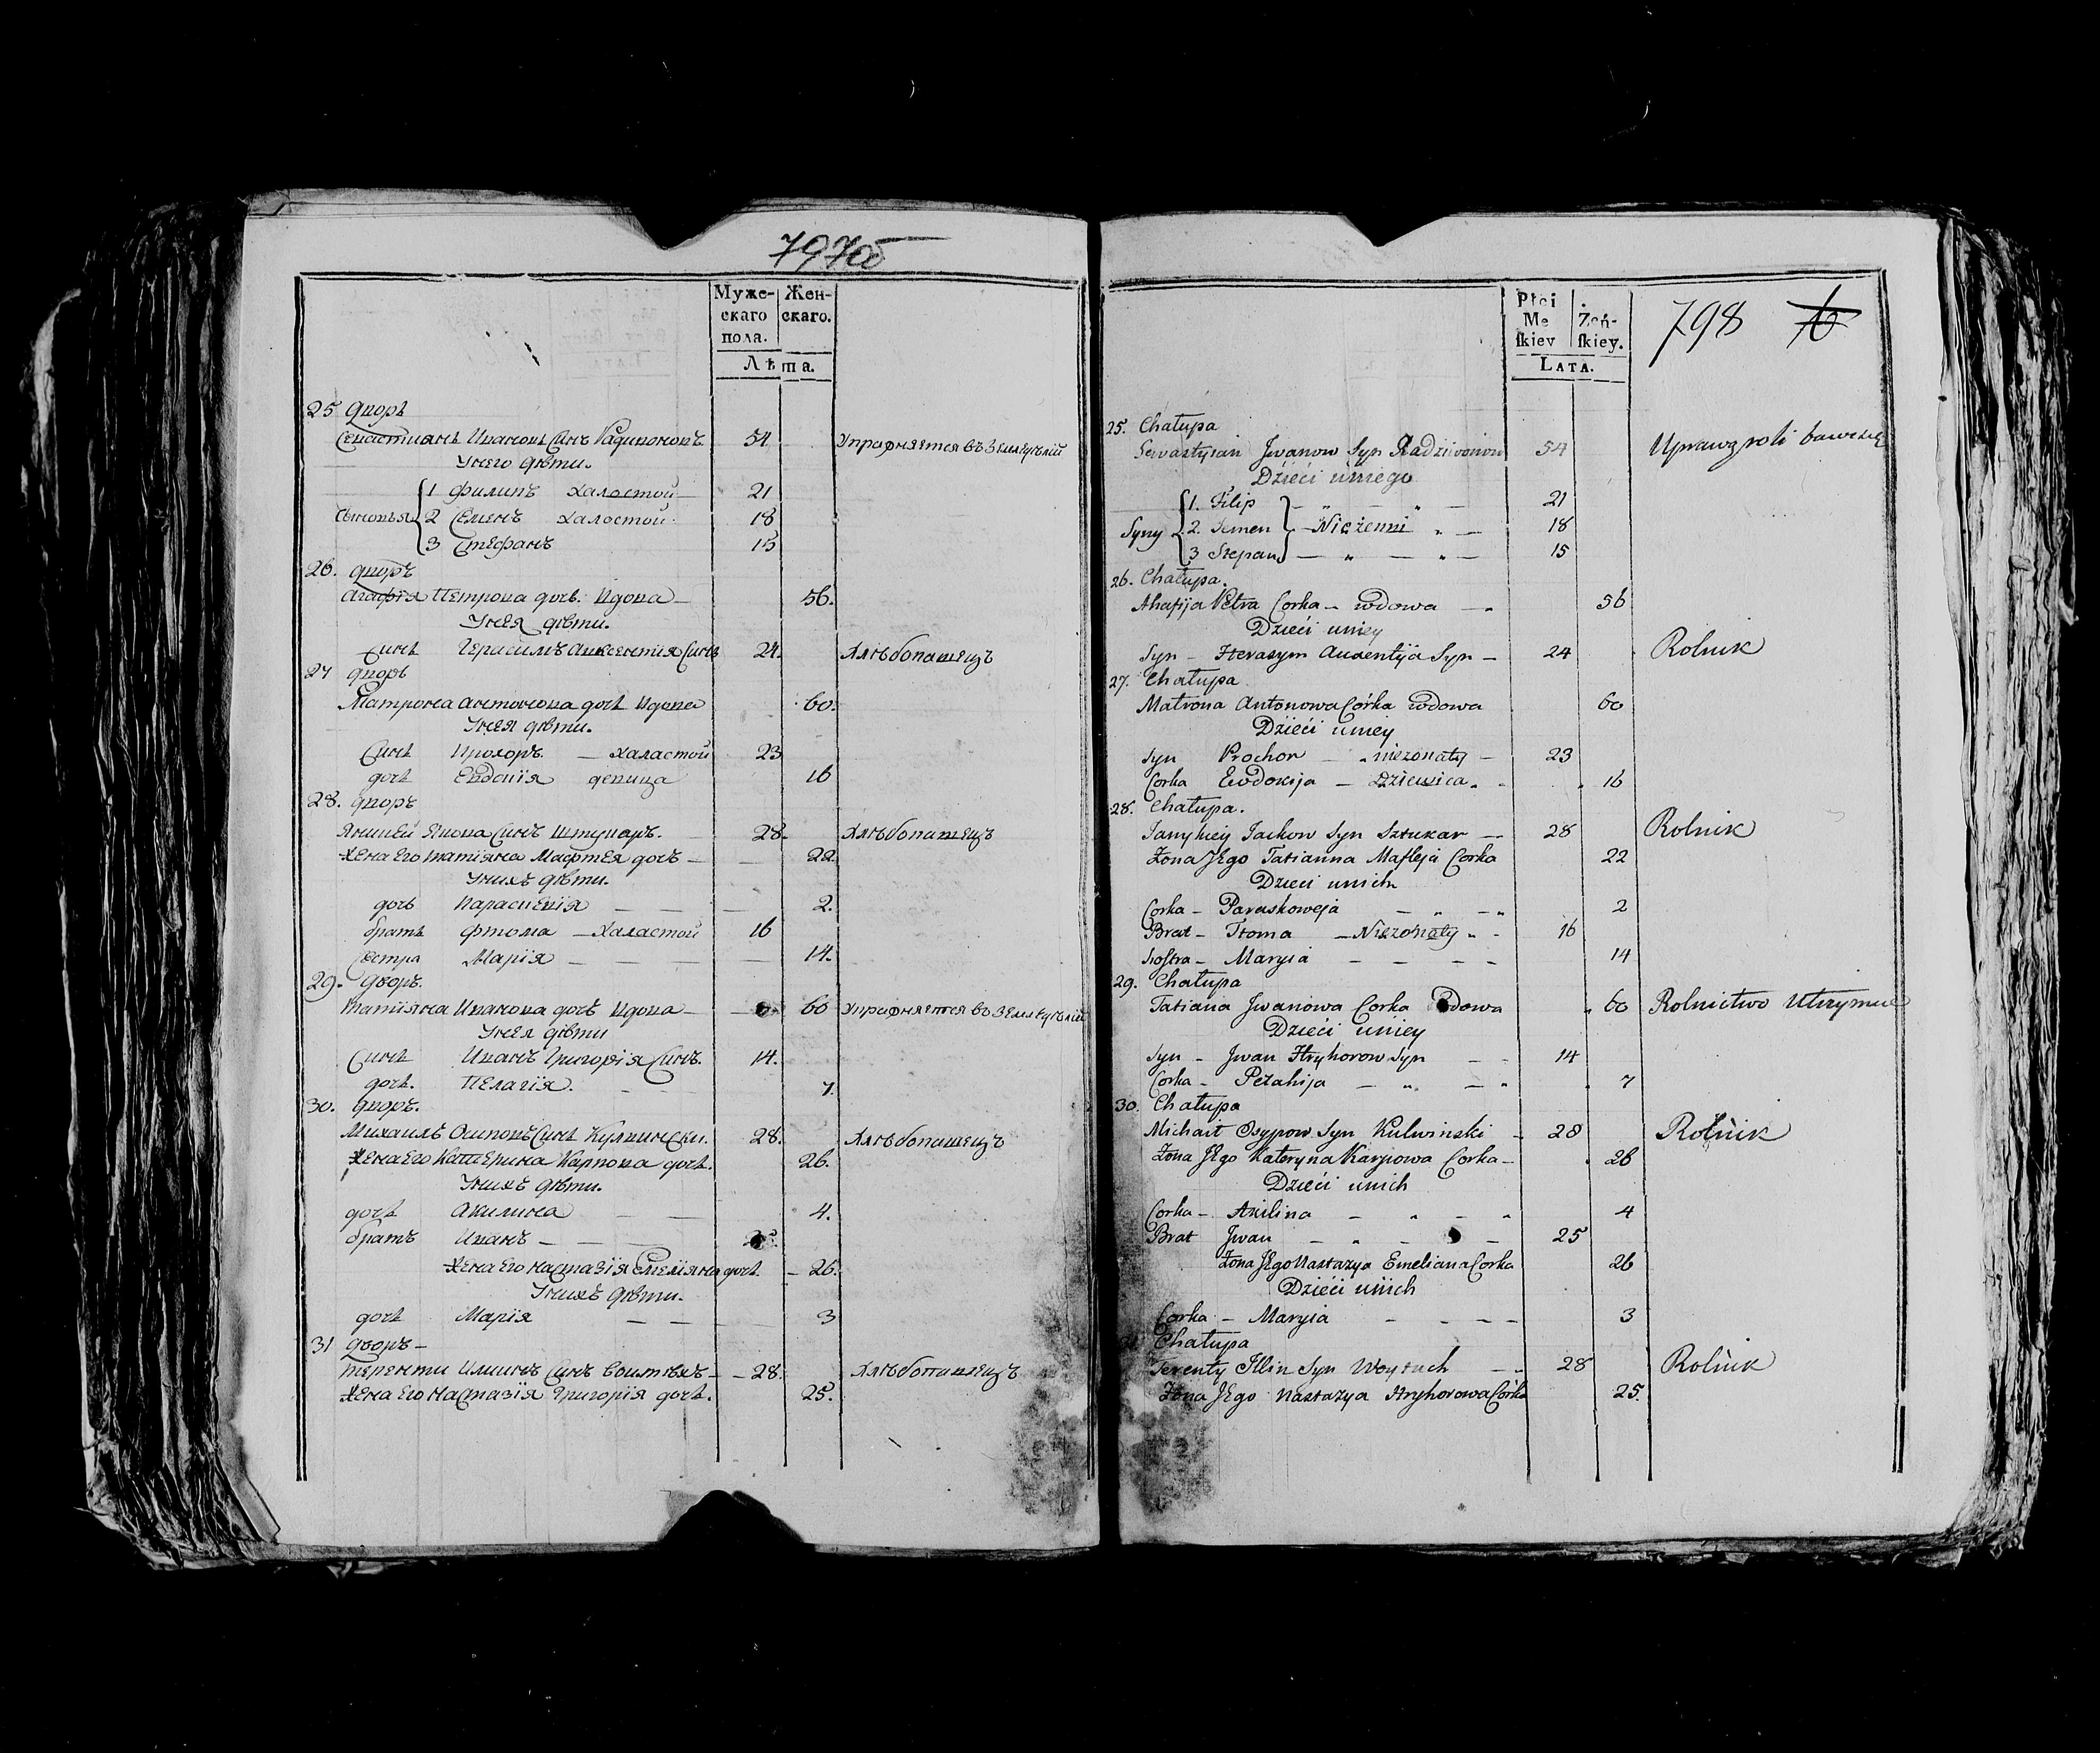 797об
Муже- Жен-
скаго скаго.
пола.
Лѣта.
25 дворъ
Севастиянъ Ивановъ Синъ Радивоновъ. 54 Упражняется въ Земледѣлїй
Унего дѣти.
1 Филипъ Халостой 21
Синовья 2 Семенъ Халостой 18
3 Стефанъ 15
26. дворъ
Агафїя Петрова дочь. вдова 56.
Унея дѣти.
Синъ Герасимъ Авксентия Синъ 24. Хлѣбопашецъ
27 дворъ
Матрона Антонова дочь вдова 60.
Унея дѣти.
Синъ Прохоръ. Халастой 23
дочь Евдокїя девица 16
28. дворъ
Яникей Яцова Синъ Штукаръ. 28. Хлѣбопашецъ
Жена Его Татїяна Мафтея дочъ 22
Унихъ дѣти.
дочь Параскевїя 2.
братъ Фтома Халастой 16
Сестра Марїя 14.
29. дворъ.
Татїяна Иванова дочъ вдова 60 Упражняется въ Земледѣлїй
Унея дѣти
Синъ Иванъ Григорїя Синъ. 14.
дочь. Пелагїя. 7.
30. дворъ.
Михаилъ Осиповъ Синъ Кулвински. 28. Хлѣбопашецъ
Жена Его Катерина Карпова дочь. 26.
Унихъ дѣти.
дочь Акилина 4.
братъ Иванъ 25.
Жена Его Настазїя Емелїяна дочь. 26.
Унихъ дѣти.
дочь Марїя 3
31 дворъ
Теренти Илинъ Синъ Воитюхъ 28. Хлѣбопашецъ
Жена Его Настазїя Григорїя дочь. 25.
798
Płci
Mę Żeń-
ſkiey ſkiey.
LATA.
25. Chałupa
Sewastyian Jwanow Syn Radziwonow 54 Uprawą roli bawi się
Dzieći uniego
1. Filip 21
Syny 2. Semen Nieżenni 18
3 Stepan 15
26. Chałupa.
Ahafija Petra Corka wdowa 56
Dzieći uniey
Syn Herasym Auxentija Syn 24 Rolnik
27. Chałupa
Matrona Antonowa Córka wdowa 60
Dzieći uniey
Syn Prochor nieżonaty 23
Corka Ewdokija Dziewica 16
28. Chałupa.
Janykiey Jackow Syn Sztukar 28 Rolnik
Żona Jego Tatianna Mafteja Corka 22
Dzieci unich
Corka Paraskoweja 2
Brat Htoma Nieżonaty 16
Sioſtra Marysia 14
29. Chałupa
Tatiana Jwanowa Corka wdowa 60 Rolnictwo Utrzymuie
Dzieći uniey
Syn Jwan Hryhorow Syn 14
Corka Pełahija 7
30. Chałupa
Michait Osypow Syn Kulwinski 28 Rolnik
Żona Jego Kateryna Karpowa Corka 26
Dzieći unich
Corka Akilina 4
Brat Jwan 25
Żona Jego Nastazya Emeliana Corka 26
Dzieći unich
Corka Marysia 3
Chałupa
Terenty Jllin Syn Woytuch 28 Rolnik
Żona Jego Nastazya Hryhorowa Córka 25.